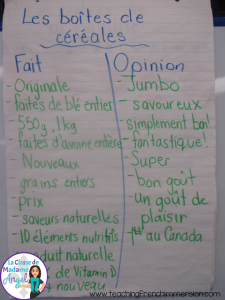 Les boîtes de
céréales
Fait
- Originale
- faites de blé entier
- 550g, 1kg
- faites d'avoine entière
- Nouveaux
grains entiers
- prix
- saveurs naturelles
- 10 éléments nutritifs
duit naturelle
de Vitamin D
nouveau
Opinion
- Jumbo
- savoureux
- simplement bon!
- fantastique!
- Super
- bon goût
- un goût de
plaisir
- #1 au Canada
La Classe de
Madame
Angel
www.TeachingFrenchImmersion.com